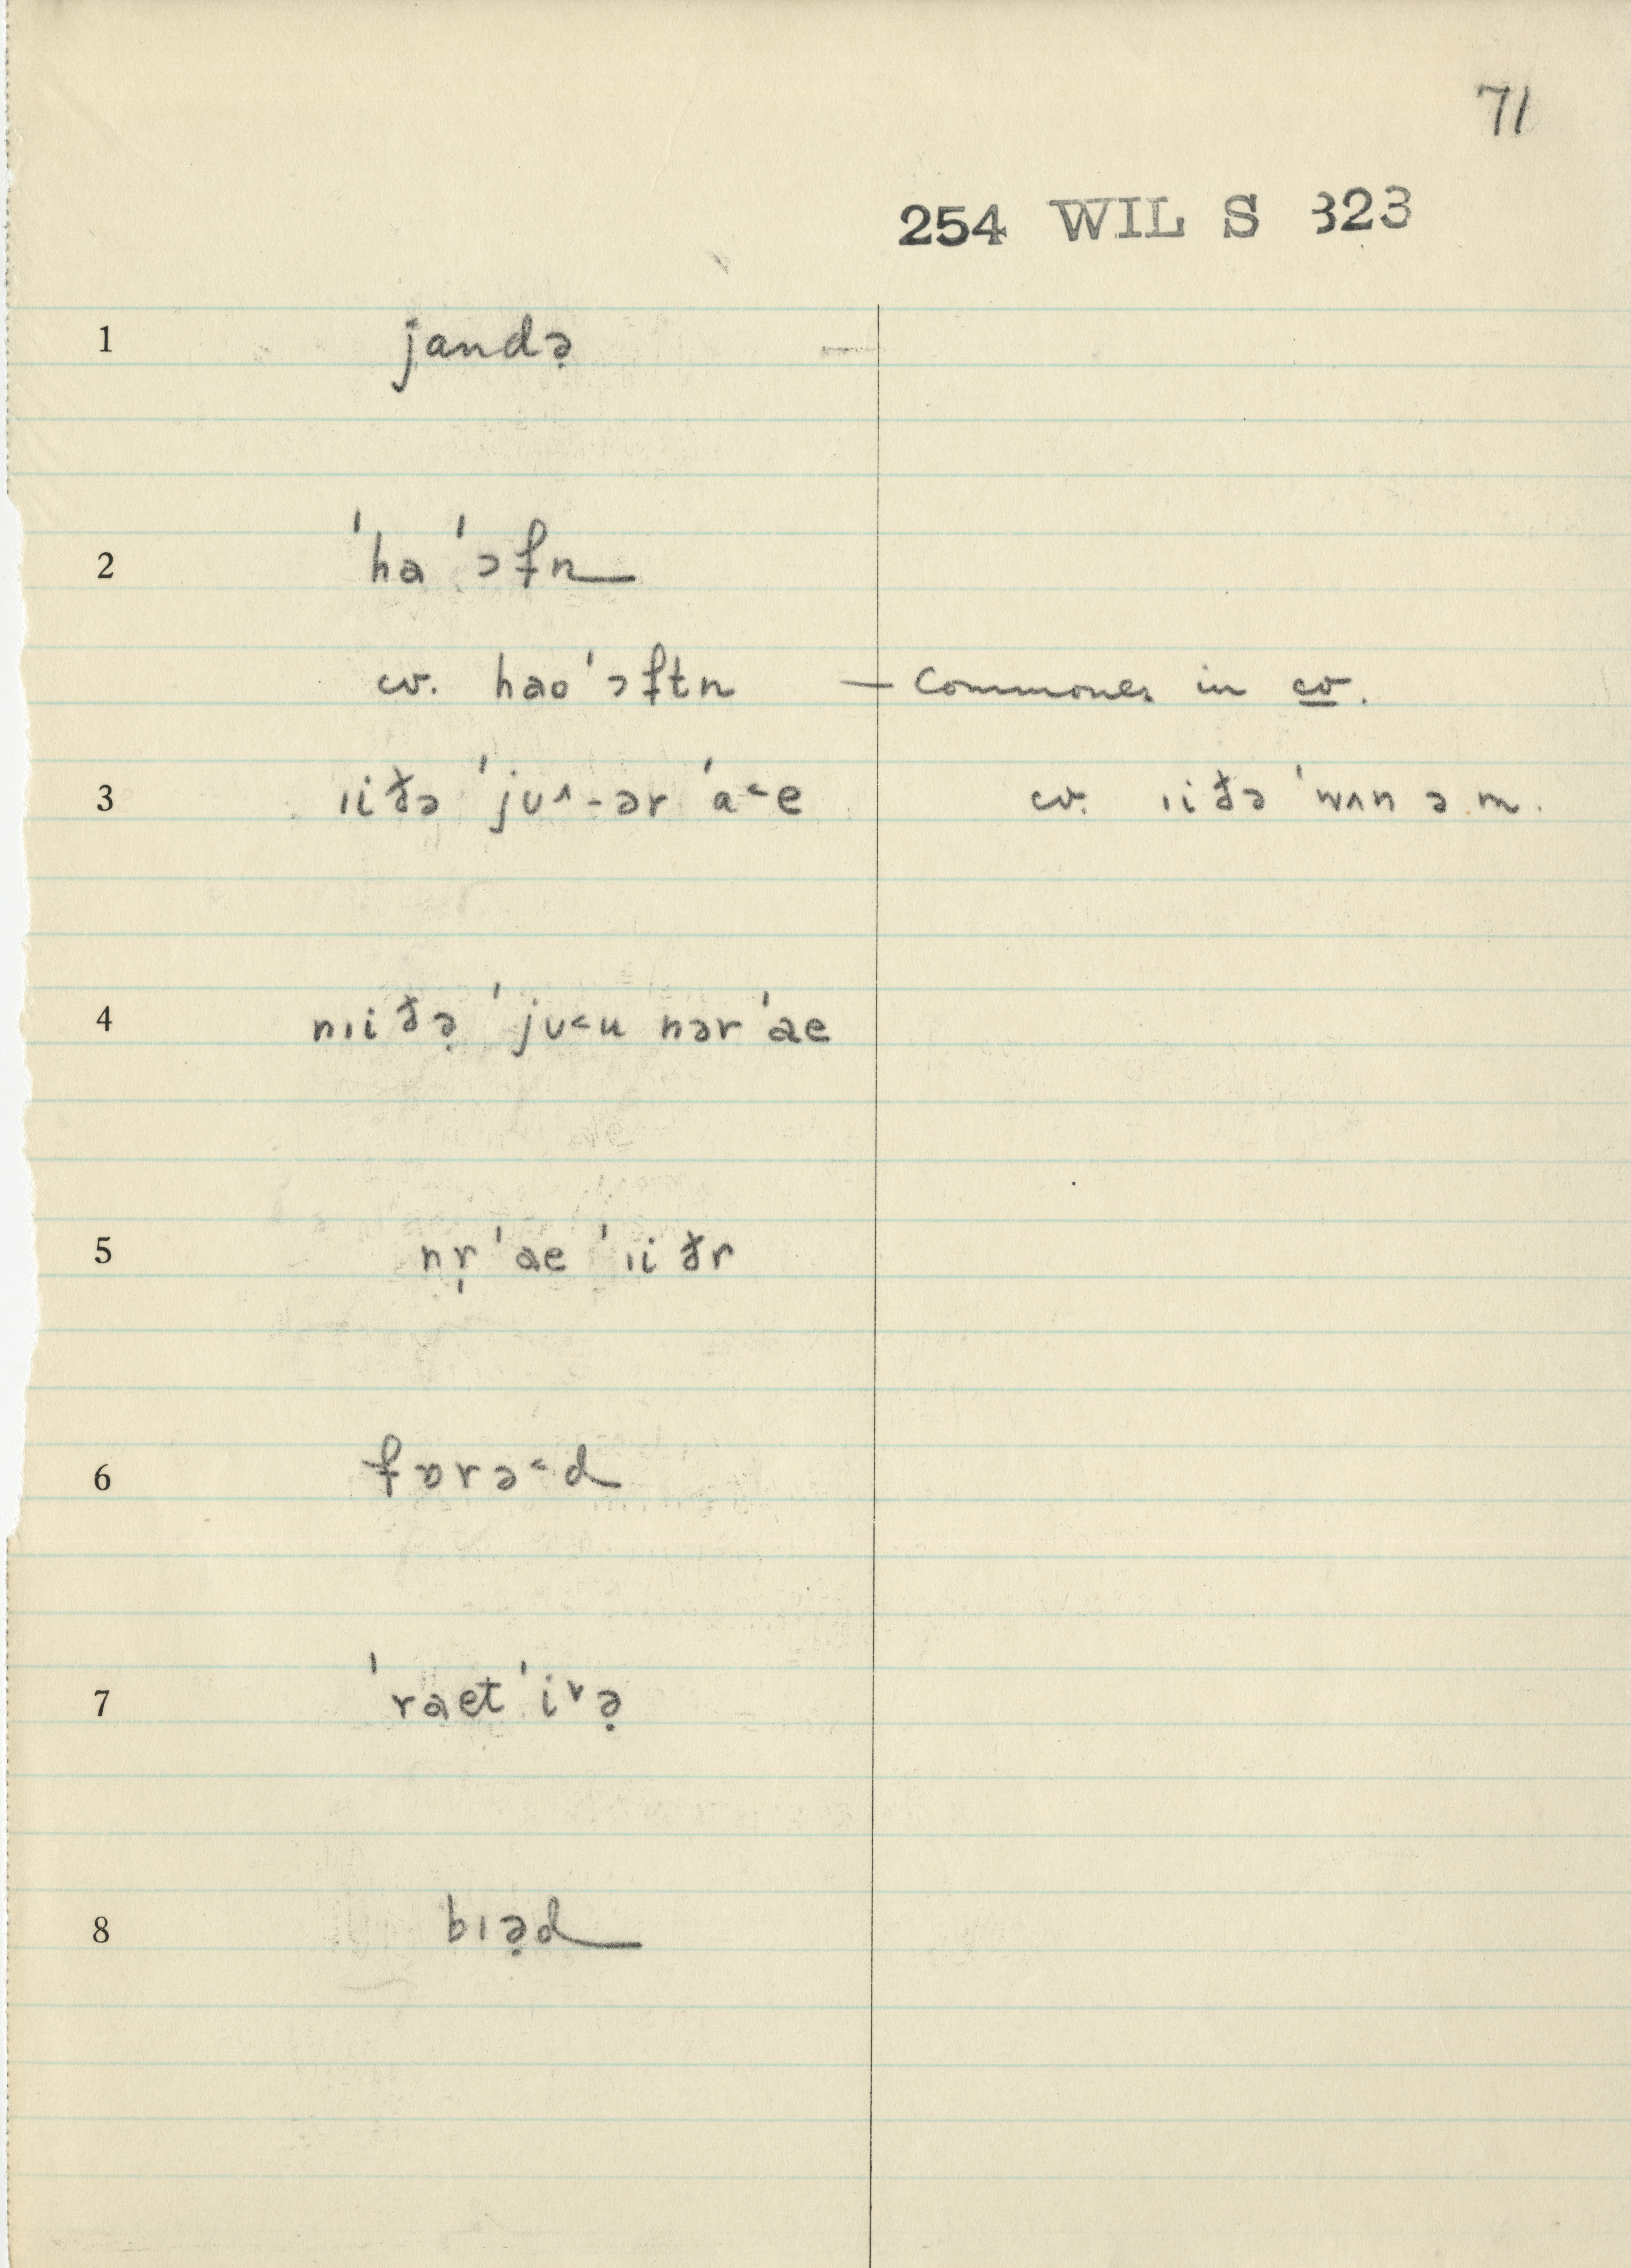 71
254 WIL S 323
1 jandə̣
2 ˈha ˈɔfn
cv. haoˈɔftn — Commoner in cv.
3 ɪiðə ˈjʊ˄-ər ˈa˂e cv. ɪiðə ˈwʌn ə m.
4 nɪiðə̣ ˈjʊ˂u nər ˈae
5 nr̩ ˈae ˈɪiðr
6 fɒrə˂d
7 ˈraetˈi˅ə̣
8 bɪə̣d